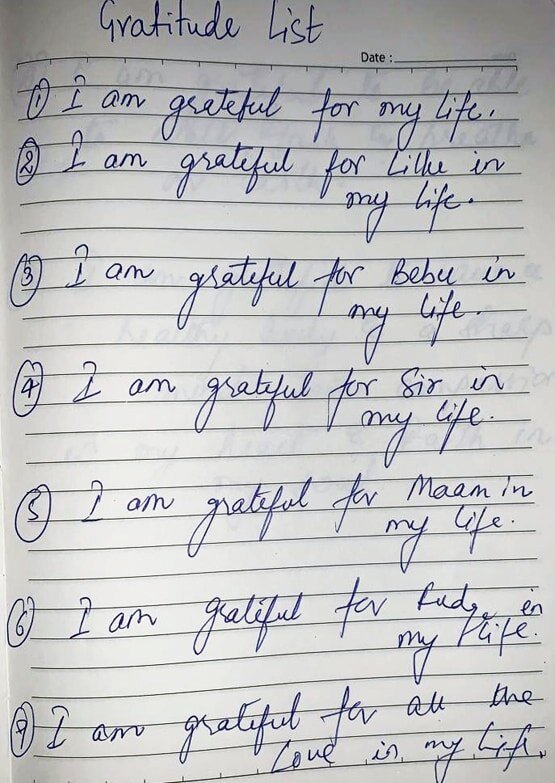 Gratitude List
Date :
① I am grateful for my life.
② I am grateful for Lilke in
my life.
③ I am grateful for Bebu in
my life.
④ I am grateful for Sir in
my life.
⑤ I am grateful for Maam in
my life.
⑥ I am grateful for in
my life.
⑦ I am grateful for all the
Love in my life.